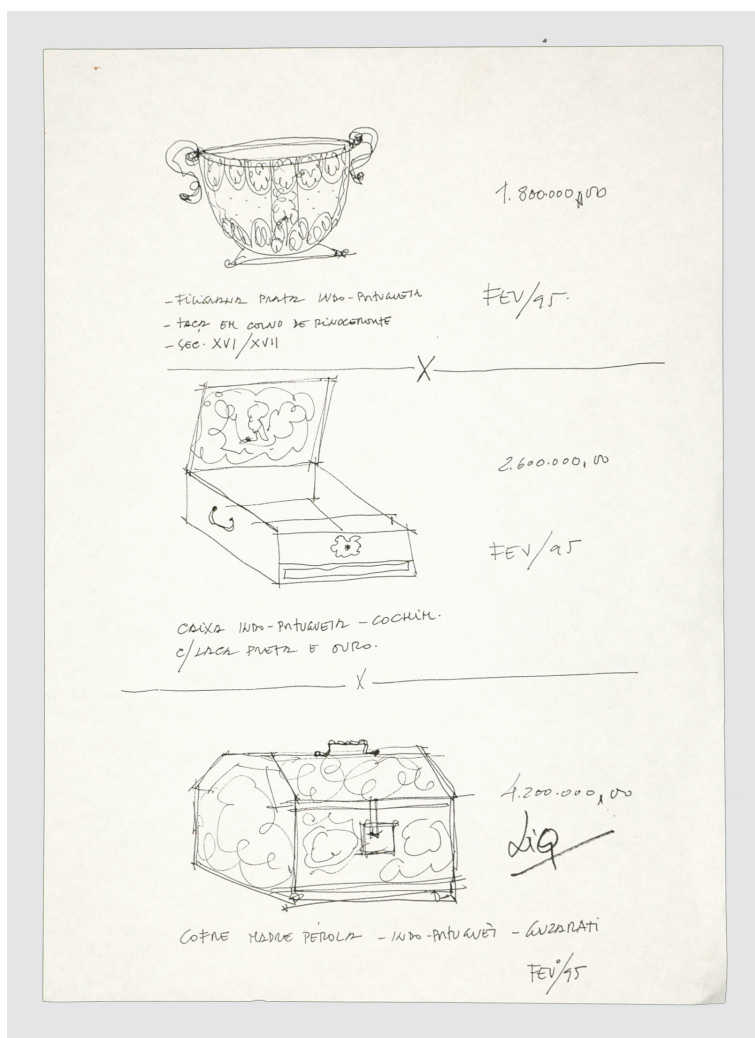 1.800.000,00
- FILIGRANA PRATA INDO-PORTUGUESA
- TAÇA EM CORNO DE RINOCERONTE
- SEC. XVI/XVII
FEV/95.
X
2.600.000,00
FEV/95
CAIXA INDO-PORTUGUESA - COCHIM.
C/LACA PRETA E OURO.
X
4.200.000,00
LiQ
COFRE MADRE PÉROLA - INDO-PORTUGUÊS - GUZARATI
FEV/95